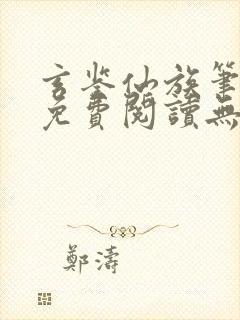 玄鉴仙族筆
免費閱讀無
鄭濤